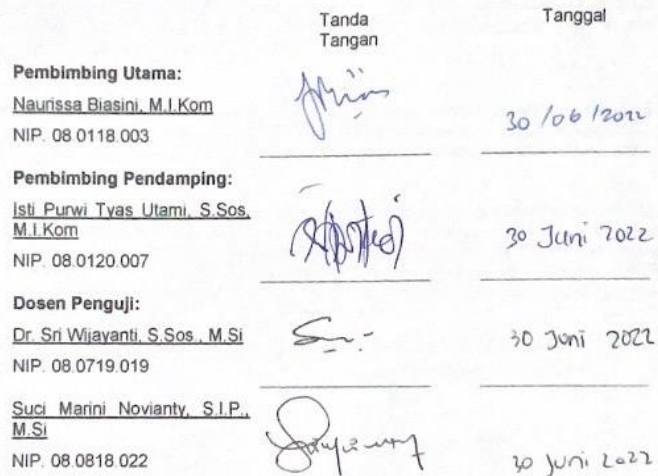 Tanda
Tangan
Tanggal
Pembimbing Utama:
Naurissa Biasini, M.I.Kom
NIP. 08 0118.003
30 /06 /2022
Pembimbing Pendamping:
Isti Purwi Tyas Utami, S.Sos,
M.I.Kom
NIP. 08.0120.007
30 Juni 2022
Dosen Penguji:
Dr. Sri Wijayanti, S.Sos., M.Si
NIP. 08.0719.019
30 Juni 2022
Suci Marini Novianty, S.I.P.,
M.Si
NIP. 08.0818.022
30 Juni 2022